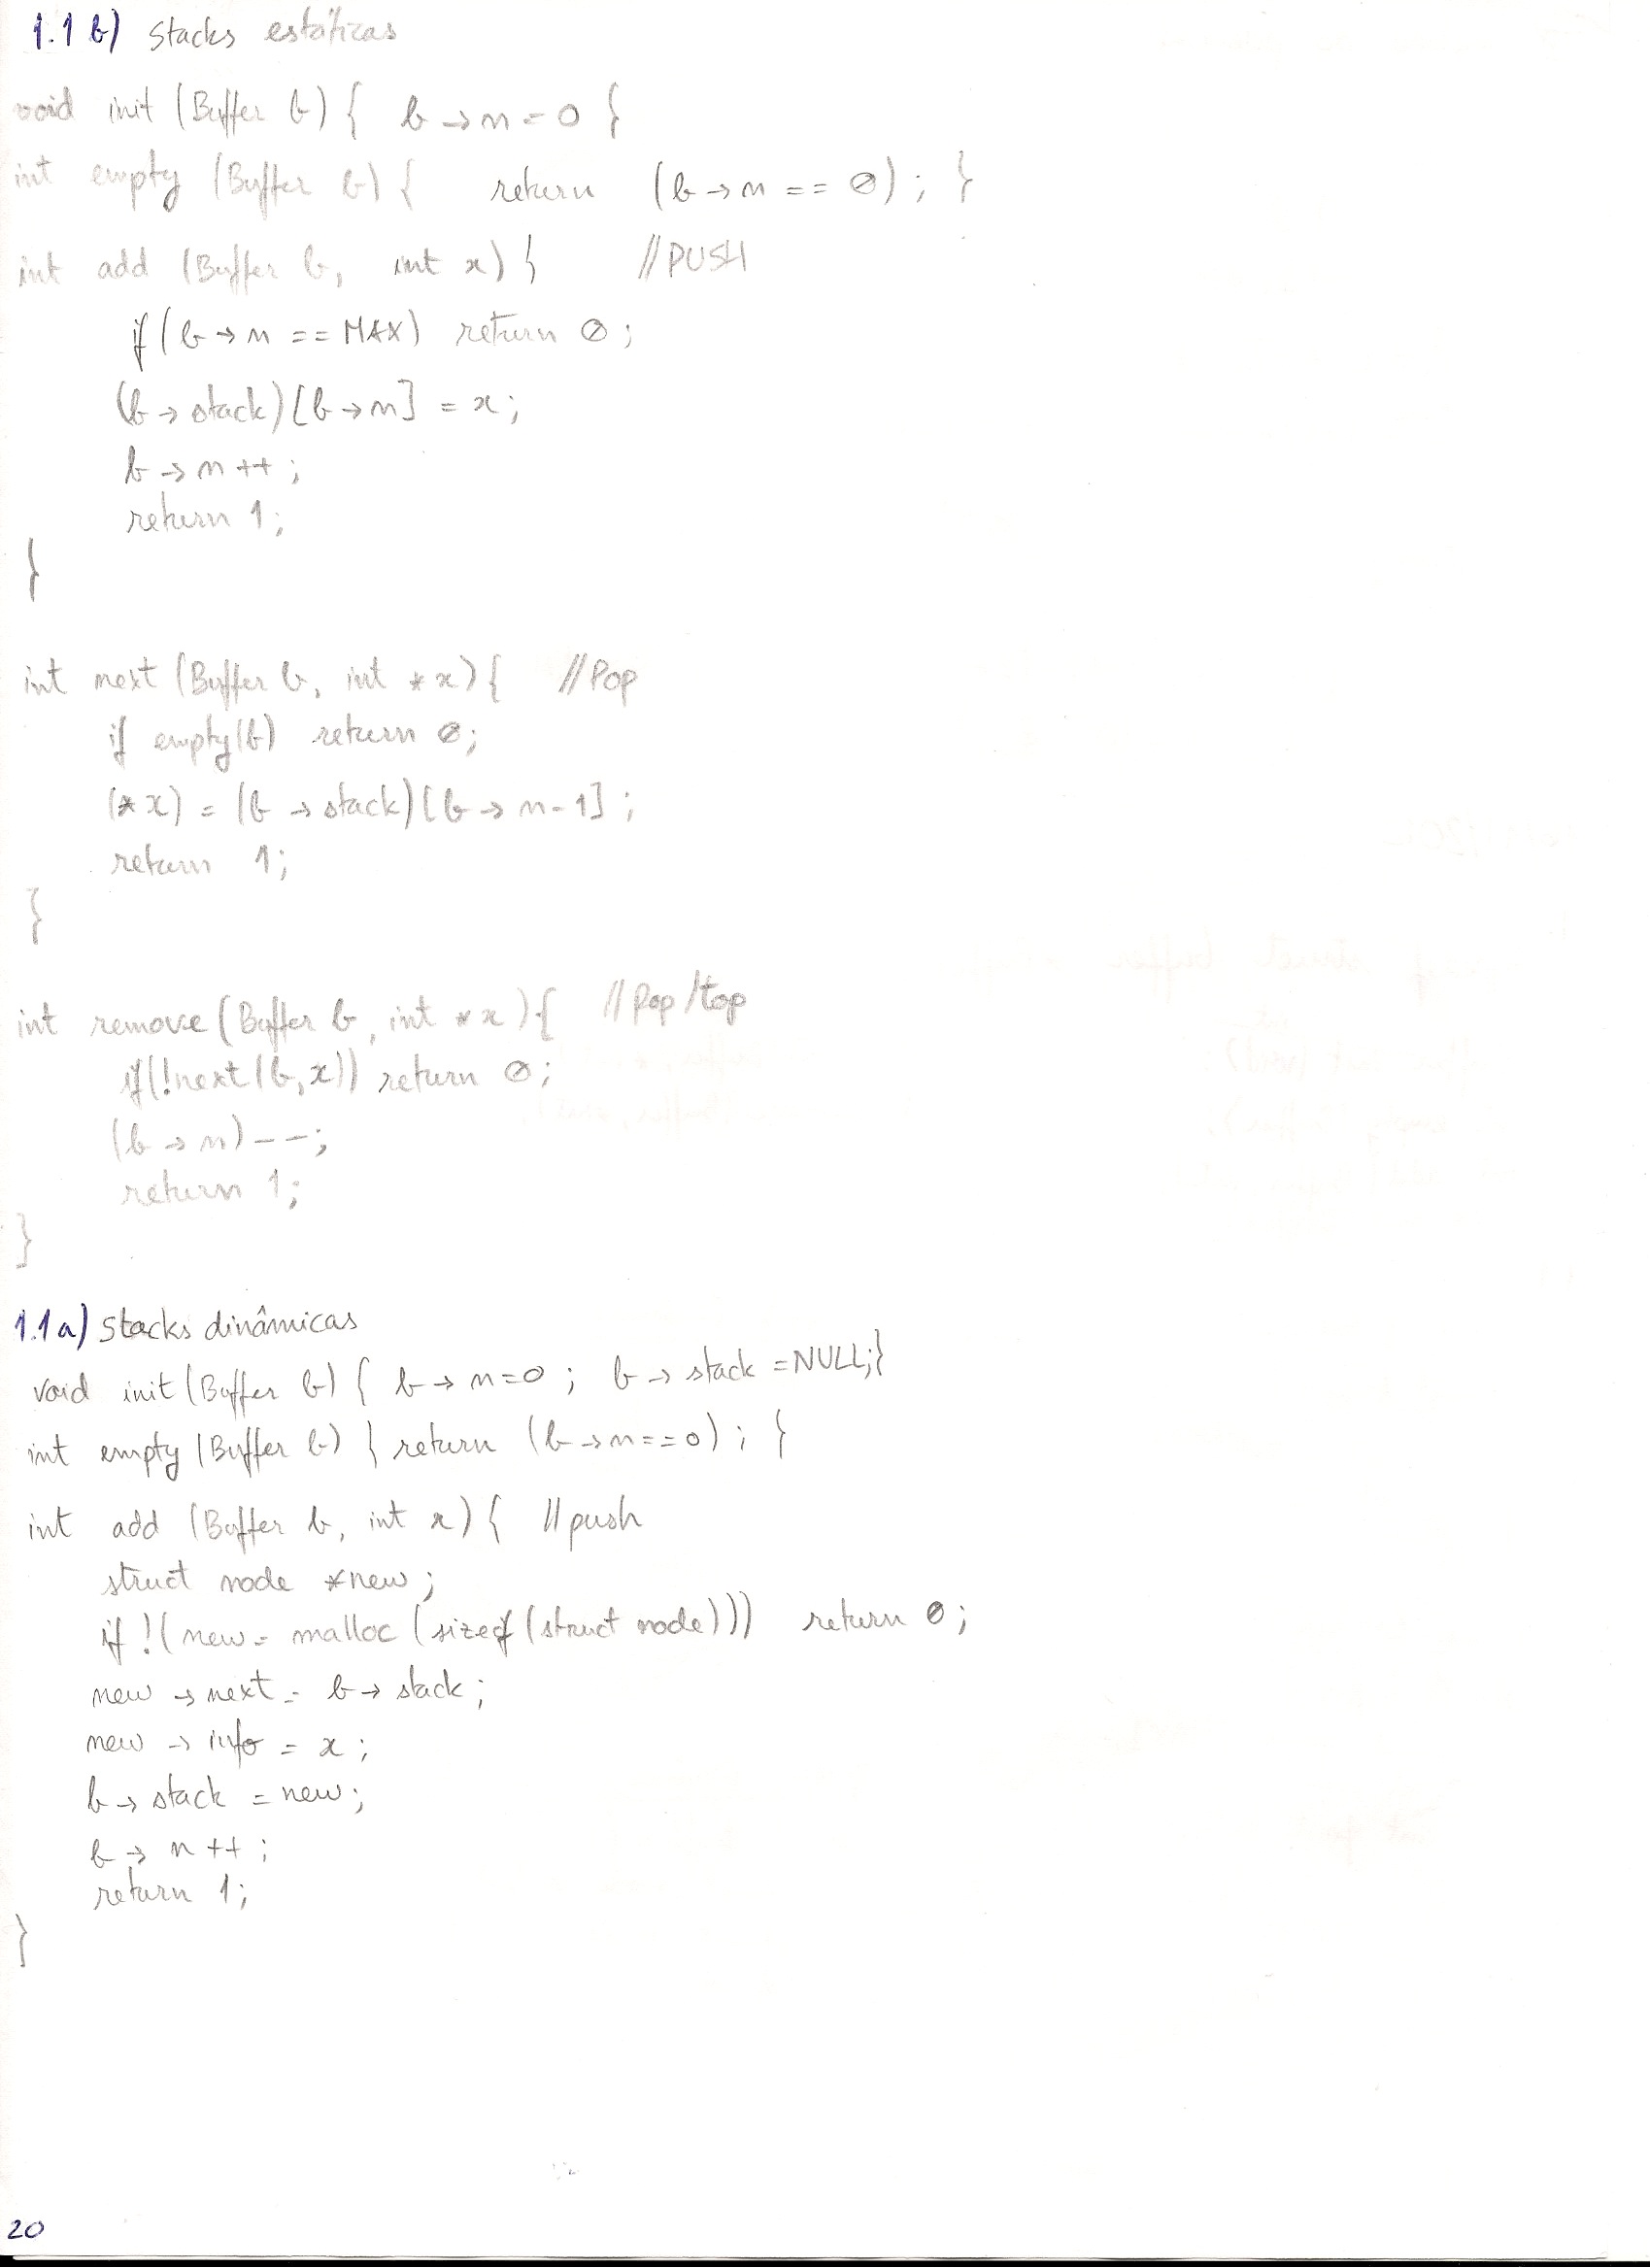 1.1 b) Stacks estáticas
void init (Buffer b) { b → n = 0 }
int empty (Buffer b) { return (b → n == 0) ; }
int add (Buffer b, int x) { //PUSH
if (b → n == MAX) return 0 ;
(b → stack) [b → n] = x ;
b → n ++ ;
return 1 ;
}
int next (Buffer b, int *x) { //Pop
if empty(b) return 0 ;
(*x) = (b → stack) [b → n-1] ;
return 1 ;
}
int remove (Buffer b, int *x) { //Pop/top
if (!next (b, x)) return 0 ;
(b → n) -- ;
return 1 ;
}
1.1 a) Stacks dinâmicas
void init (Buffer b) { b → n = 0 ; b → stack = NULL ; }
int empty (Buffer b) { return (b → n == 0) ; }
int add (Buffer b, int x) { //push
struct node *new ;
if !(new = malloc (sizeof (struct node))) return 0 ;
new → next = b → stack ;
new → info = x ;
b → stack = new ;
b → n ++ ;
return 1 ;
}
20